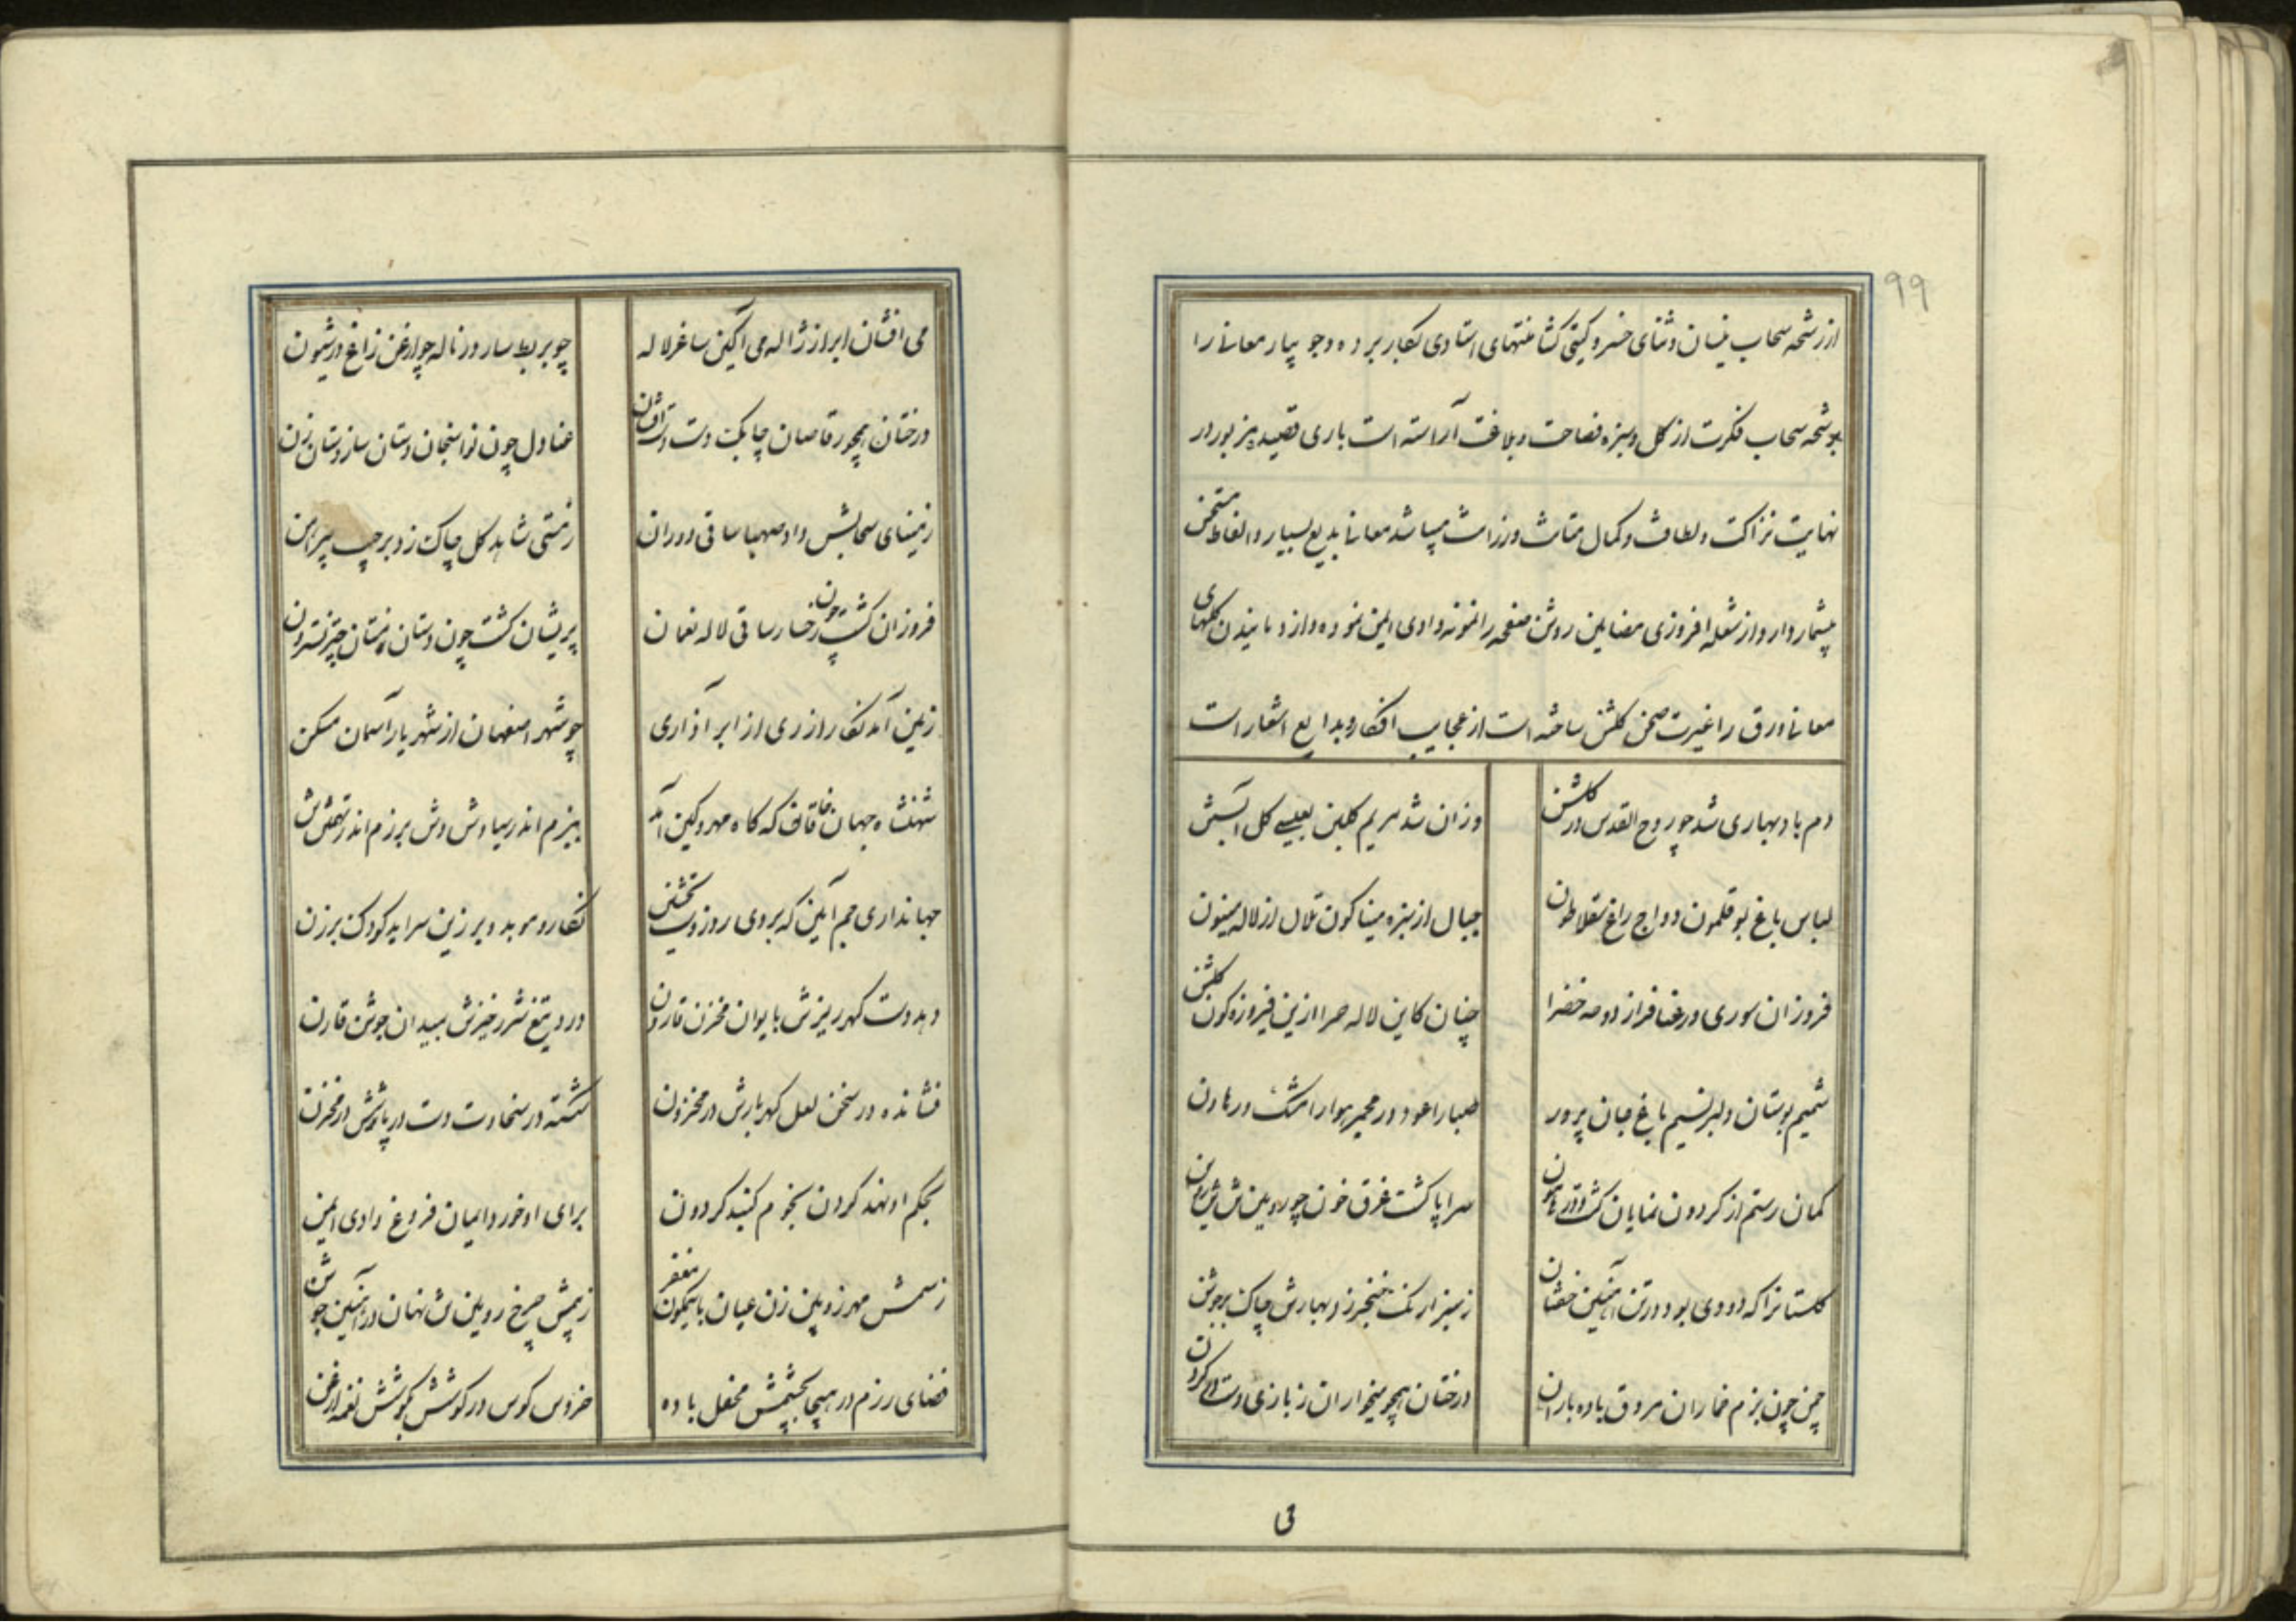 ۹۹
از رشحه سحاب نیسان و ثنای خسرو گیتی گشا منتهای استادی بکار برده و جویبار معانی را
برشحه سحاب فکرت از گل و سبزه فصاحت و بلاغت آراسته است باری قصیده مزبور در
نهایت نزاکت و لطافت و کمال متانت و رزانت میباشد معانی بدیع بسیار و الفاظ مستحسن
بیشمار دارد و از شعله افروزی مضامین روشن صفحه را نمونه وادی ایمن نموده و از دمانیدن گلهای
معانی ورق را غیرت صحن گلشن ساخته است از عجایب افکار و بدایع اشعار است
دم باد بهاری شد چو روح القدس در گلشن وزان شد مریم گلبن بعیسی گل آبستن
لباس باغ بوقلمون دواج راغ سقلاطون جبال از سبزه میناگون تلال از لاله
فروزان سوری و رعنا فراز دوحه خضرا چنان کاین لاله حمرا ازین فیروزه گون گلشن
شمیم بوستان دلبر نسیم باغ جان پرور صبا را عود در مجمر هوا را مشک در هاون
کمان رستم از گردون نمایان گشت و سراپا گشت غرق خون چو رویین تن
گلستانرا که دی بود در تن آهنین خفتان ز سبزه نارنگ خنجر زد بهارش چاک بر جوشن
چمن چون بزم خماران مروق باده باران درختان همچو میخواران ز بازی دست
می
می افشان ابر از ژاله می آگین ساغر لاله چو بربط سار در ناله چو ارغن زاغ در شیون
درختان همچو رقاصان چابک دست دست افشان عنادل چون نواسنجان دستان ساز دستان زن
ز مینای سحابش داد صهبا ساقی دوران ز مستی شاهد گل چاک زد بر جیب پیراهن
فروزان گشت چون رخسار ساقی لاله نعمان پریشان گشت چون دستان مستان چتر نسترون
زمین آمد نگار از ری از ابر آذاری چو شهر اصفهان از شهریار آسمان مسکن
شهنشاه جهان خاقان که گاه مهر و کین آمد ببزم اندر سیاوش وش برزم اندر تهمتن تن
جهانداری جم آیین که بر وی روز و شب تحسین نگارد موبد و برزین سراید کودک و برزن
دهد دست گهرریزش بایوان مخزن قارون درد تیغ شررخیزش بمیدان جوشن قارن
فشانده در سخن لعل گهربارش در مخزون شکسته در سخاوت دست درپاشش در مخزن
بحکم او نهد گردن نجوم گنبد گردون برای او خورد ایمان فروغ وادی ایمن
ز سهمش مهر زوبین زن عیان با نیلگون مغفر ز بیمش چرخ رویین تن نهان در آهنین جوشن
فضای رزم در هیجا بچشمش محفل باده خروس کوس در کوشش بگوشش نغمه ارغن